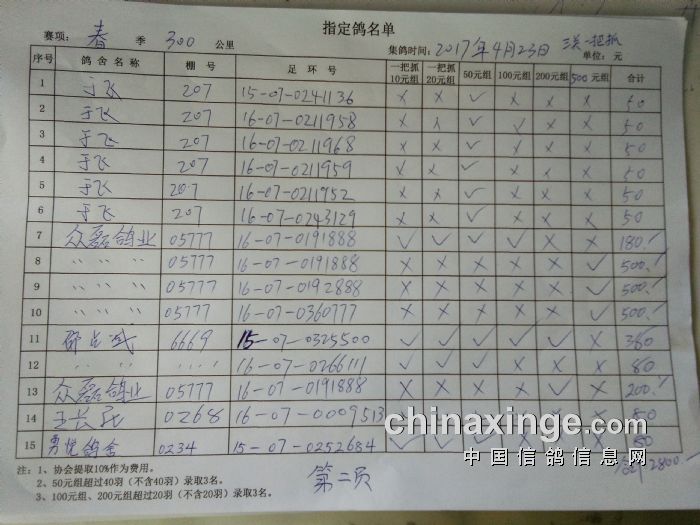 指定鸽名单
赛项： 春 季 300 公里 集鸽时间：2017年4月23日
单位：元
序号 鸽舍名称 棚号 足环号 一把抓10元组 一把抓20元组 50元组 100元组 200元组 500元组 合计
1 于飞 207 15-07-0241136 × × ✓ × × × 50
2 于飞 207 16-07-0211958 × × ✓ × × × 50
3 于飞 207 16-07-0211968 × × ✓ × × × 50
4 于飞 207 16-07-0211959 × × ✓ × × × 50
5 于飞 207 16-07-0211952 × × ✓ × × × 50
6 于飞 207 16-07-0243129 × × ✓ × × × 50
7 众磊鸽业 05777 16-07-0191888 ✓ ✓ ✓ ✓ × × 180.
8 〃 〃 〃 05777 16-07-0191888 × × × × × ✓ 500.
9 〃 〃 〃 05777 16-07-0192888 × × × × × ✓ 500.
10 〃 〃 〃 05777 16-07-0360777 × × × × × ✓ 500.
11 6669 15-07-0325500 ✓ ✓ ✓ ✓ ✓ × 380
12 16-07-0266111 ✓ ✓ ✓ × × × 80
13 众磊鸽业 05777 16-07-0191888 × × × × ✓ × 200.
14 0268 16-07-0009513 80
15 鸽舍 0234 15-07-0252684 80
2800.
注：1、协会提取10%作为费用。
2、50元组超过40羽（不含40羽）录取3名。
3、100元组、200元组超过20羽（不含20羽）录取3名。
第二页
chinaxinge.com
中国信鸽信息网